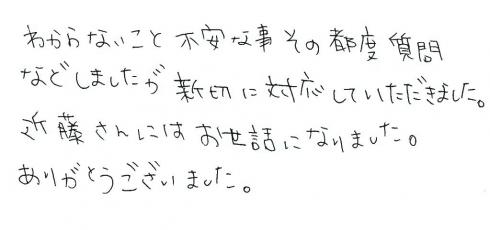 わからないこと 不安な事 その都度 質問
などしましたが 新切に対応していただきました。
近藤さんにはお世話になりました。
ありがとうございました。